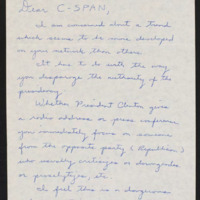 Dear C-SPAN,
I am concerned about a trend
which seems to be more developed
on your network than others.
It has to do with the way
you disparage the authority of the
presidency.
Whether President Clinton gives
a radio address or press conference
you immediately focus or
from the opposite party (Republican)
who usually criticizes or downgrades
or proselytizes, etc.
I feel this is a dangerous